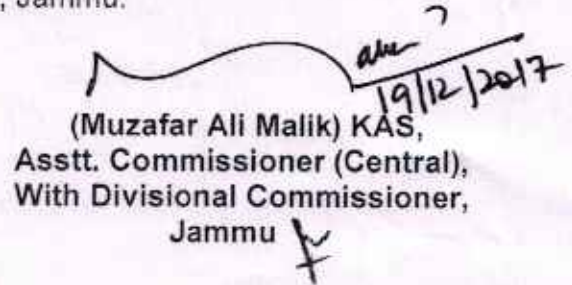 , Jammu.
19/12/2017
(Muzafar Ali Malik) KAS,
Asstt. Commissioner (Central),
With Divisional Commissioner,
Jammu